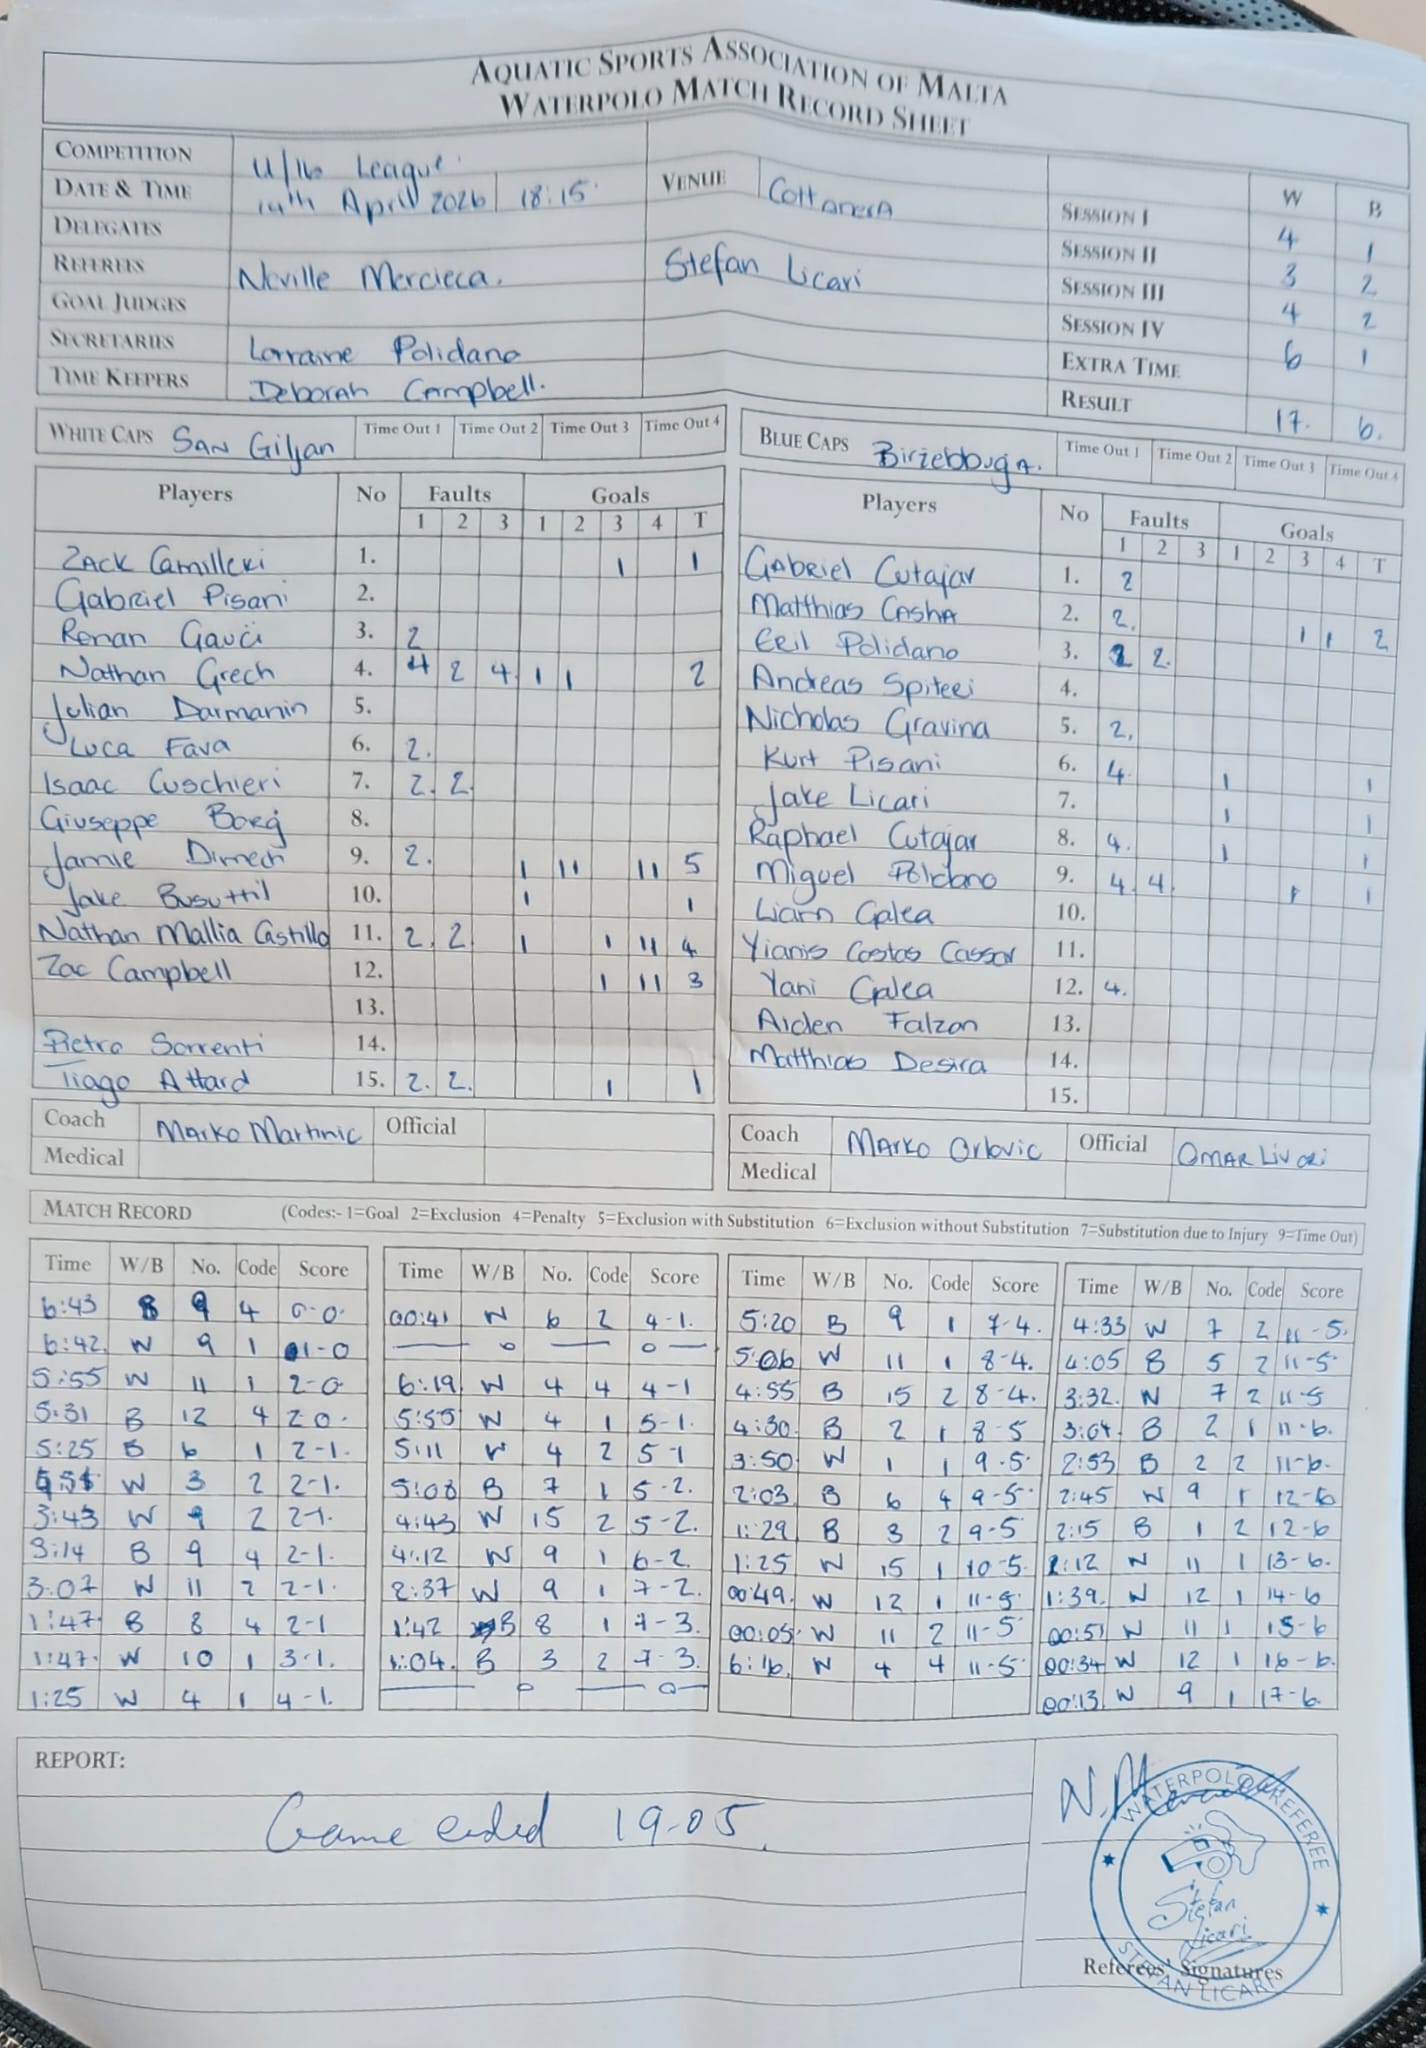 AQUATIC SPORTS ASSOCIATION OF MALTA
WATERPOLO MATCH RECORD SHEET
COMPETITION U/16 League
DATE & TIME 14th April 2026 18:15 VENUE Cottonera
DELEGATES
REFEREES Neville Mercieca. Stefan Licari
GOAL JUDGES
SECRETARIES Lorraine Polidano
TIME KEEPERS Deborah Campbell.
W B
SESSION I 4 1
SESSION II 3 2
SESSION III 4 2
SESSION IV 6 1
EXTRA TIME
RESULT 17. 6.
WHITE CAPS SAN Giljan Time Out 1 Time Out 2 Time Out 3 Time Out 4
Players No Faults Goals
1 2 3 1 2 3 4 T
Zack Camilleri 1. 1 1
Gabriel Pisani 2.
Ronan Gauci 3. 2
Nathan Grech 4. 4 2 4 1 1 2
Julian Darmanin 5.
Luca Fava 6. 2.
Isaac Cuschieri 7. 2. 2
Giuseppe Borg 8.
Jamie Dimech 9. 2. 1 11 11 5
Jake Busuttil 10. 1 1
Nathan Mallia Castillo 11. 2, 2 1 1 11 4
Zac Campbell 12. 1 11 3
13.
Pietro Sorrenti 14.
Tiago Attard 15. 2. 2. 1 1
Coach Marko Martinic Official
Medical
BLUE CAPS Birzebbuga. Time Out 1 Time Out 2 Time Out 3 Time Out 4
Players No Faults Goals
1 2 3 1 2 3 4 T
Gabriel Cutajar 1. 2
Matthias Casha 2. 2. 1 1 2
Ceil Polidano 3. 2 2.
Andreas Spiteri 4.
Nicholas Gravina 5. 2,
Kurt Pisani 6. 4. 1 1
Jake Licari 7. 1 1
Raphael Cutajar 8. 4. 1 1
Miguel Polidano 9. 4 4 1 1
Liam Galea 10.
Yianis Costas Cassar 11.
Yani Galea 12. 4.
Aiden Falzon 13.
Matthias Desira 14.
15.
Coach Marko Orlovic Official OMAR Livori
Medical
MATCH RECORD (Codes:- 1=Goal 2=Exclusion 4=Penalty 5=Exclusion with Substitution 6=Exclusion without Substitution 7=Substitution due to Injury 9=Time Out)
Time W/B No. Code Score
6:43 B 9 4 0-0
6:42 W 9 1 1-0
5:55 W 11 1 2-0
5:31 B 12 4 2 0.
5:25 B 6 1 2-1.
W 3 2 2-1.
3:43 W 9 2 2-1.
3:14 B 9 4 2-1.
3:07 W 11 2 2-1.
1:47 B 8 4 2-1
1:47. W 10 1 3-1.
1:25 W 4 1 4-1.
Time W/B No. Code Score
00:41 W 6 2 4-1.
6:19 W 4 4 4-1
5:55 W 4 1 5-1.
5:11 W 4 2 5-1
5:08 B 7 1 5-2.
4:43 W 15 2 5-2.
4:12 W 9 1 6-2
2:37 W 9 1 7-2.
1:42 B 8 1 7-3.
1:04. B 3 2 7-3.
Time W/B No. Code Score
5:20 B 9 1 7-4.
5:06 W 11 1 8-4.
4:55 B 15 2 8-4.
4:30 B 2 1 8-5
3:50 W 1 1 9-5
2:03 B 6 4 9-5
1:29 B 3 2 9-5
1:25 W 15 1 10-5.
00:49. W 12 1 11-5
00:05 W 11 2 11-5
6:16 W 4 4 11-5
Time W/B No. Code Score
4:33 W 7 2 11-5.
4:05 B 5 2 11-5
3:32. W 7 2 11-5
3:04. B 2 1 11-6.
2:53 B 2 2 11-6.
2:45 W 9 1 12-6
2:15 B 1 2 12-6
2:12 W 11 1 13-6.
1:39. W 12 1 14-6
00:51 W 11 1 15-6
00:34 W 12 1 16-6.
00:13 W 9 1 17-6.
REPORT:
Game ended 19-05
WATERPOLO REFEREE
Stefan
Licari
STEFAN LICARI
Referees' Signatures